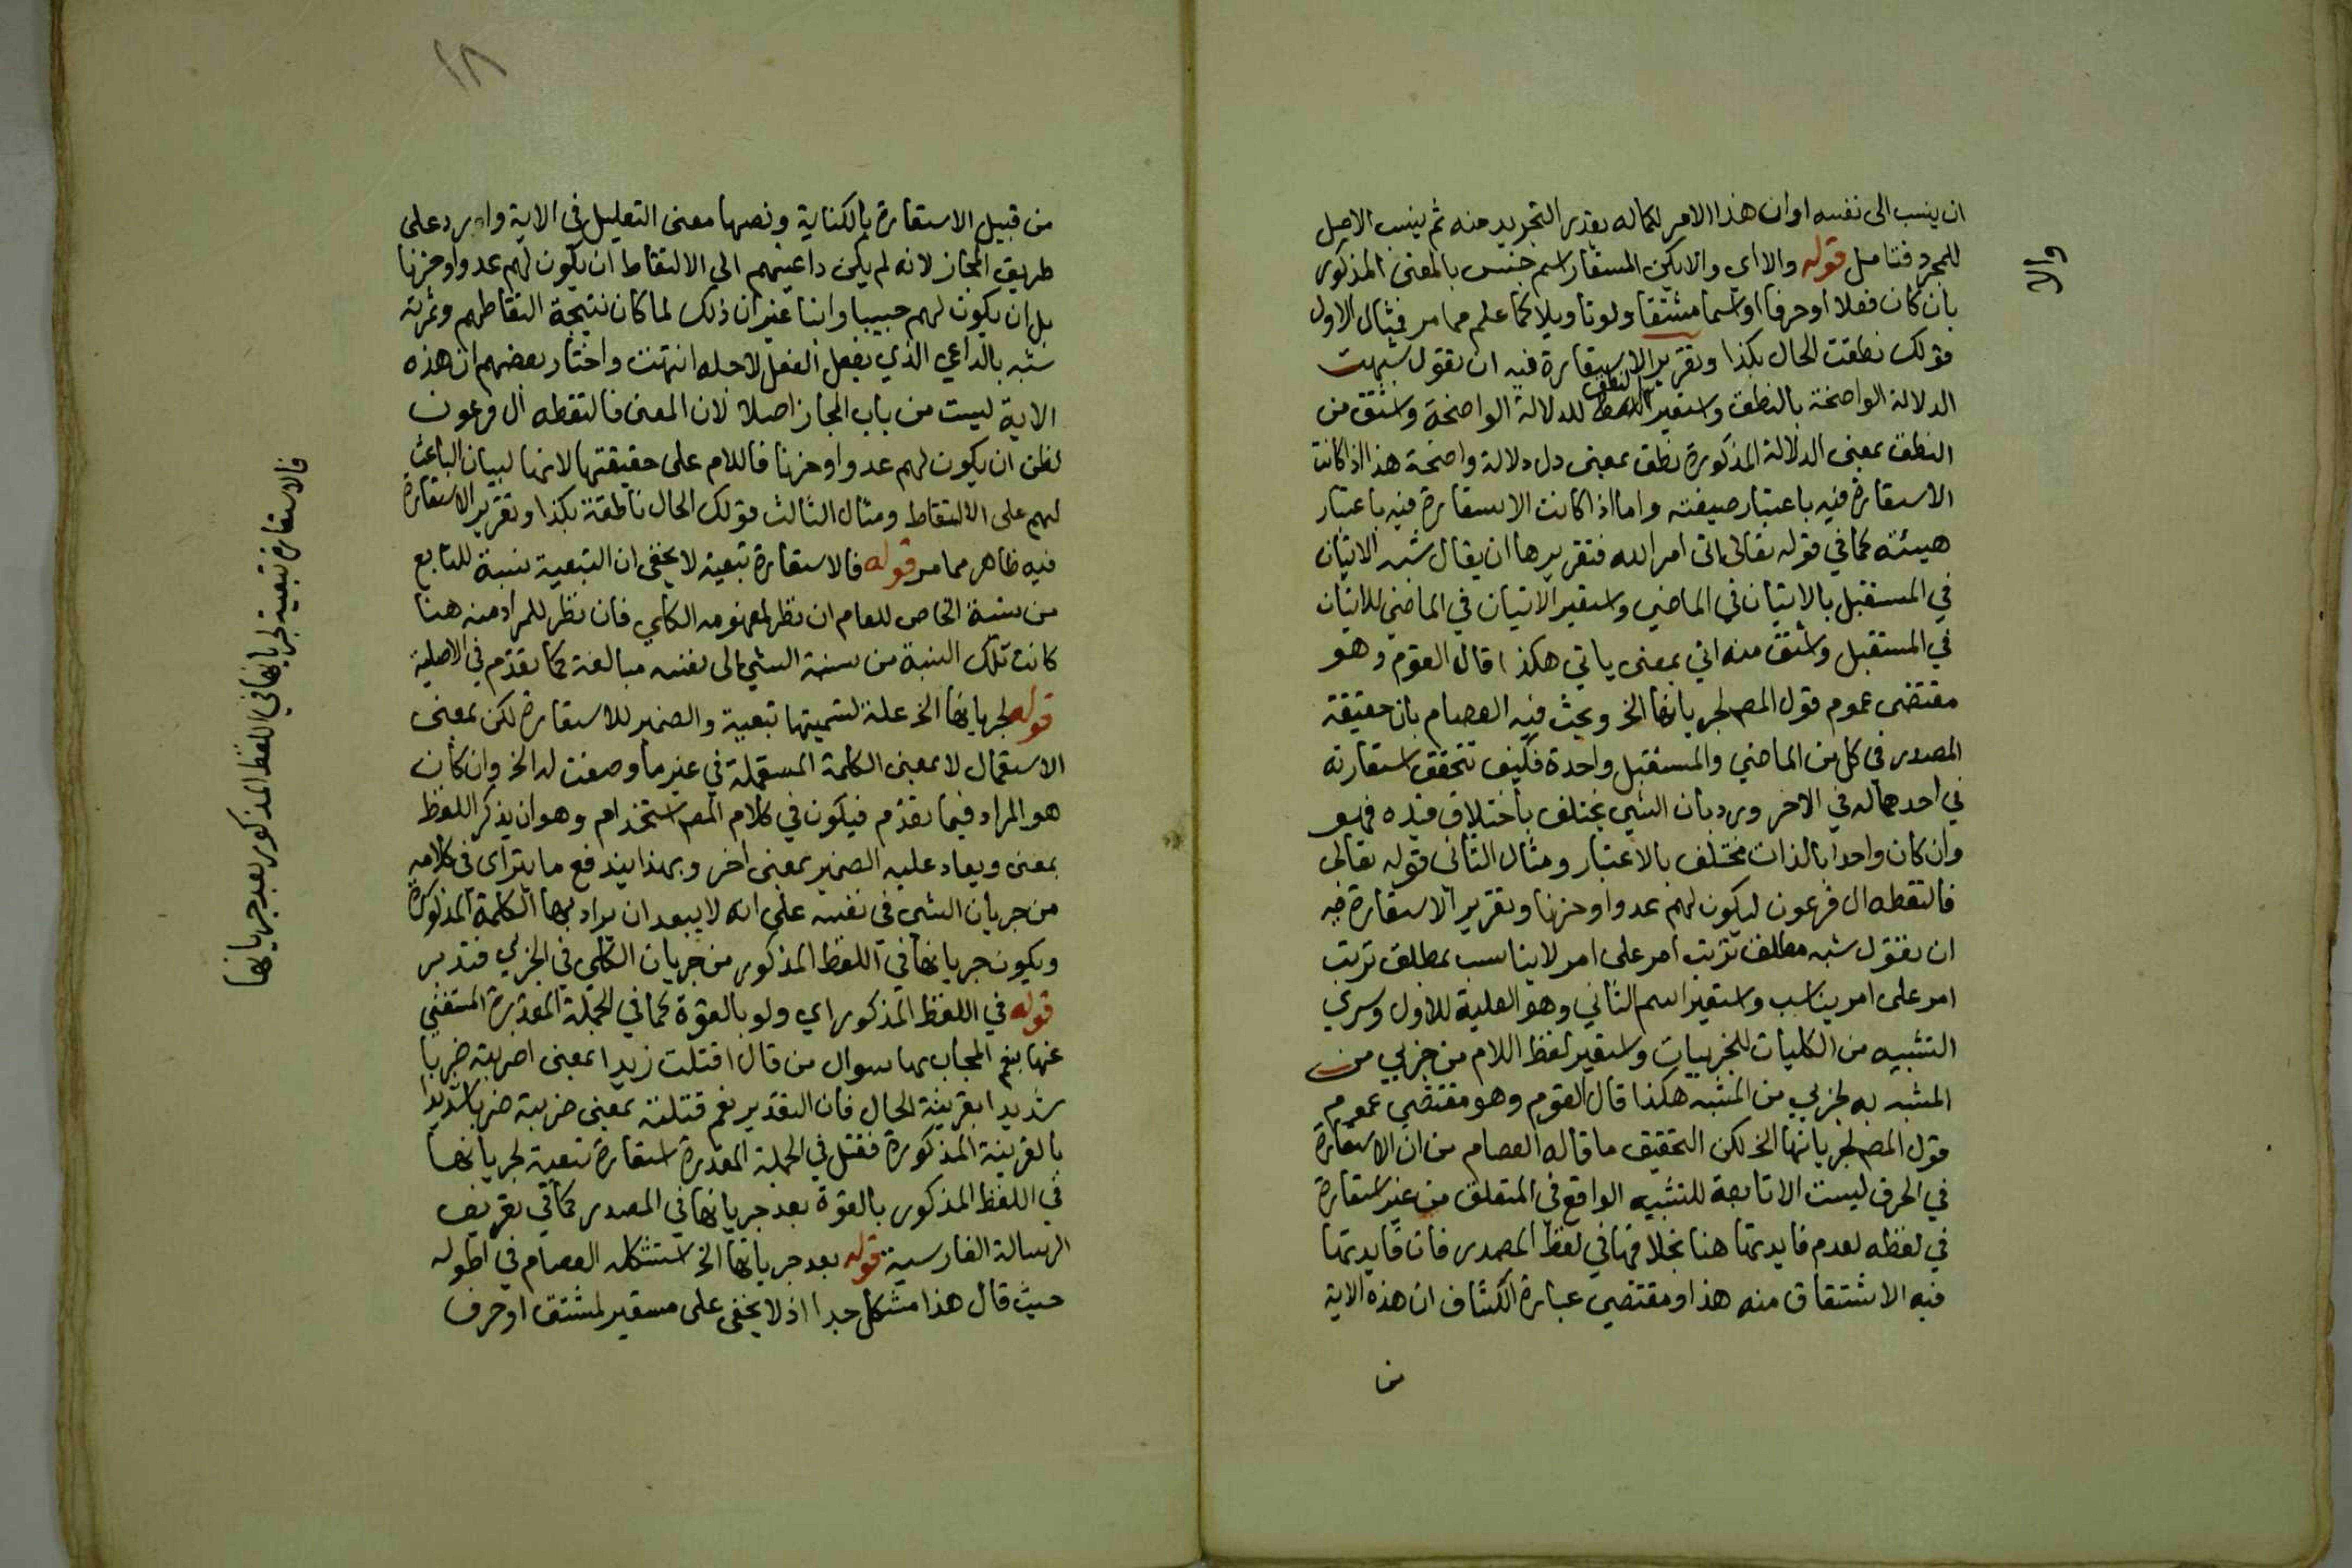 ان ينسب الى نفسه او ان هذا الامر لكماله يقدر التجريد منه ثم ينسب الاصل
للمجرد فتامل قوله والا اي والا يكن المستعار اسم جنس بالمعنى المذكور
والا
بان كان فعلا او حرفا او اسما مشتقا ولو تاويلا كما علم مما مر فمثال الاول
قولك نطقت الحال بكذا وتقرير الاستعارة فيه ان تقول شبهت
الدلالة الواضحة بالنطق واستعير النطق للدلالة الواضحة واشتق من
النطق بمعنى الدلالة المذكورة نطق بمعنى دل دلالة واضحة هذا اذا كانت
الاستعارة فيه باعتبار صيغته واما اذا كانت الاستعارة فيه باعتبار
هيئته كما في قوله تعالى اتى امر الله فتقريرها ان يقال شبه الاتيان
في المستقبل بالاتيان في الماضي واستعير الاتيان في الماضي للاتيان
في المستقبل واشتق منه اتى بمعنى ياتي هكذا قال القوم وهو
مقتضى عموم قول المص لجريانها الخ وبحث فيه العصام بان حقيقة
المصدر في كل من الماضي والمستقبل واحدة فكيف تتحقق استعارته
في احدهما له في الاخر ورد بان الشي يختلف باختلاف قيده فهو
وان كان واحدا بالذات مختلف بالاعتبار ومثال الثاني قوله تعالى
فالتقطه ال فرعون ليكون لهم عدوا وحزنا وتقرير الاستعارة فيه
ان تقول شبه مطلق ترتب امر على امر لا يناسب بمطلق ترتب
امر على امر يناسب واستعير اسم الثاني وهو العلية للاول وسرى
التشبيه من الكليات للجزييات واستعير لفظ اللام من جزيي من
المشبه به لجزيي من المشبه هكذا قال القوم وهو مقتضى عموم
قول المص لجريانها الخ لكن التحقيق ما قاله العصام من ان الاستعارة
في الحرف ليست الا تابعة للتشبيه الواقع في المتعلق من غير استعارة
في لفظه لعدم فايدتها هنا بخلافها في لفظ المصدر فان فايدتها
فيه الاشتقاق منه هذا ومقتضى عبارة الكشاف ان هذه الاية
من
١٨
من قبيل الاستعارة بالكناية ونصها معنى التعليل في الاية وارد على
طريق المجاز لانه لم يكن داعيهم الى الالتقاط ان يكون لهم عدوا وحزنا
بل ان يكون لهم حبيبا وابنا غير ان ذلك لما كان نتيجة التقاطهم وثمرته
شبه بالداعي الذي يفعل الفعل لاجله انتهت واختار بعضهم ان هذه
الاية ليست من باب المجاز اصلا لان المعنى فالتقطه ال فرعون
لظن ان يكون لهم عدوا وحزنا فاللام على حقيقتها لانها لبيان الباعث
لهم على الالتقاط ومثال الثالث قولك الحال ناطقة بكذا وتقرير الاستعارة
فيه ظاهر مما مر قوله فالاستعارة تبعية لا يخفى ان التبعية نسبة للتابع
من نسبة الخاص للعام ان نظر لمفهومه الكلي فان نظر للمراد منه هنا
كانت تلك النسبة من نسبة الشي الى نفسه مبالغة كما تقدم في الاصلية
قوله لجريانها الخ علة لتسميتها تبعية والضمير للاستعارة لكن بمعنى
الاستعمال لا بمعنى الكلمة المستعملة في غير ما وضعت له الخ وان كان
هو المراد فيما تقدم فيكون في كلام المص استخدام وهو ان يذكر اللفظ
بمعنى ويعاد عليه الضمير بمعنى اخر وبهذا يندفع ما يتراى في كلامه
من جريان الشي في نفسه على انه لا يبعد ان يراد بها الكلمة المذكورة
ويكون جريانها في اللفظ المذكور من جريان الكلي في الجزيي فتدبر
قوله في اللفظ المذكور اي ولو بالقوة كما في الجملة المقدرة المستغنى
عنها بنعم المجاب بها سوال من قال اقتلت زيدا بمعنى اضربته ضربا
شديدا بقرينة الحال فان التقدير نعم قتلته بمعنى ضربته ضربا شديدا
بالقرينة المذكورة فقتل في الجملة المقدرة استعارة تبعية لجريانها
في اللفظ المذكور بالقوة بعد جريانها في المصدر كما في تعريف
الرسالة الفارسية قوله بعد جريانها الخ استشكله العصام في اطوله
حيث قال هذا مشكل جدا اذ لا يخفى على مستعير لمشتق او حرف
فالاستعارة تبعية لجريانها في اللفظ المذكور بعد جريانها